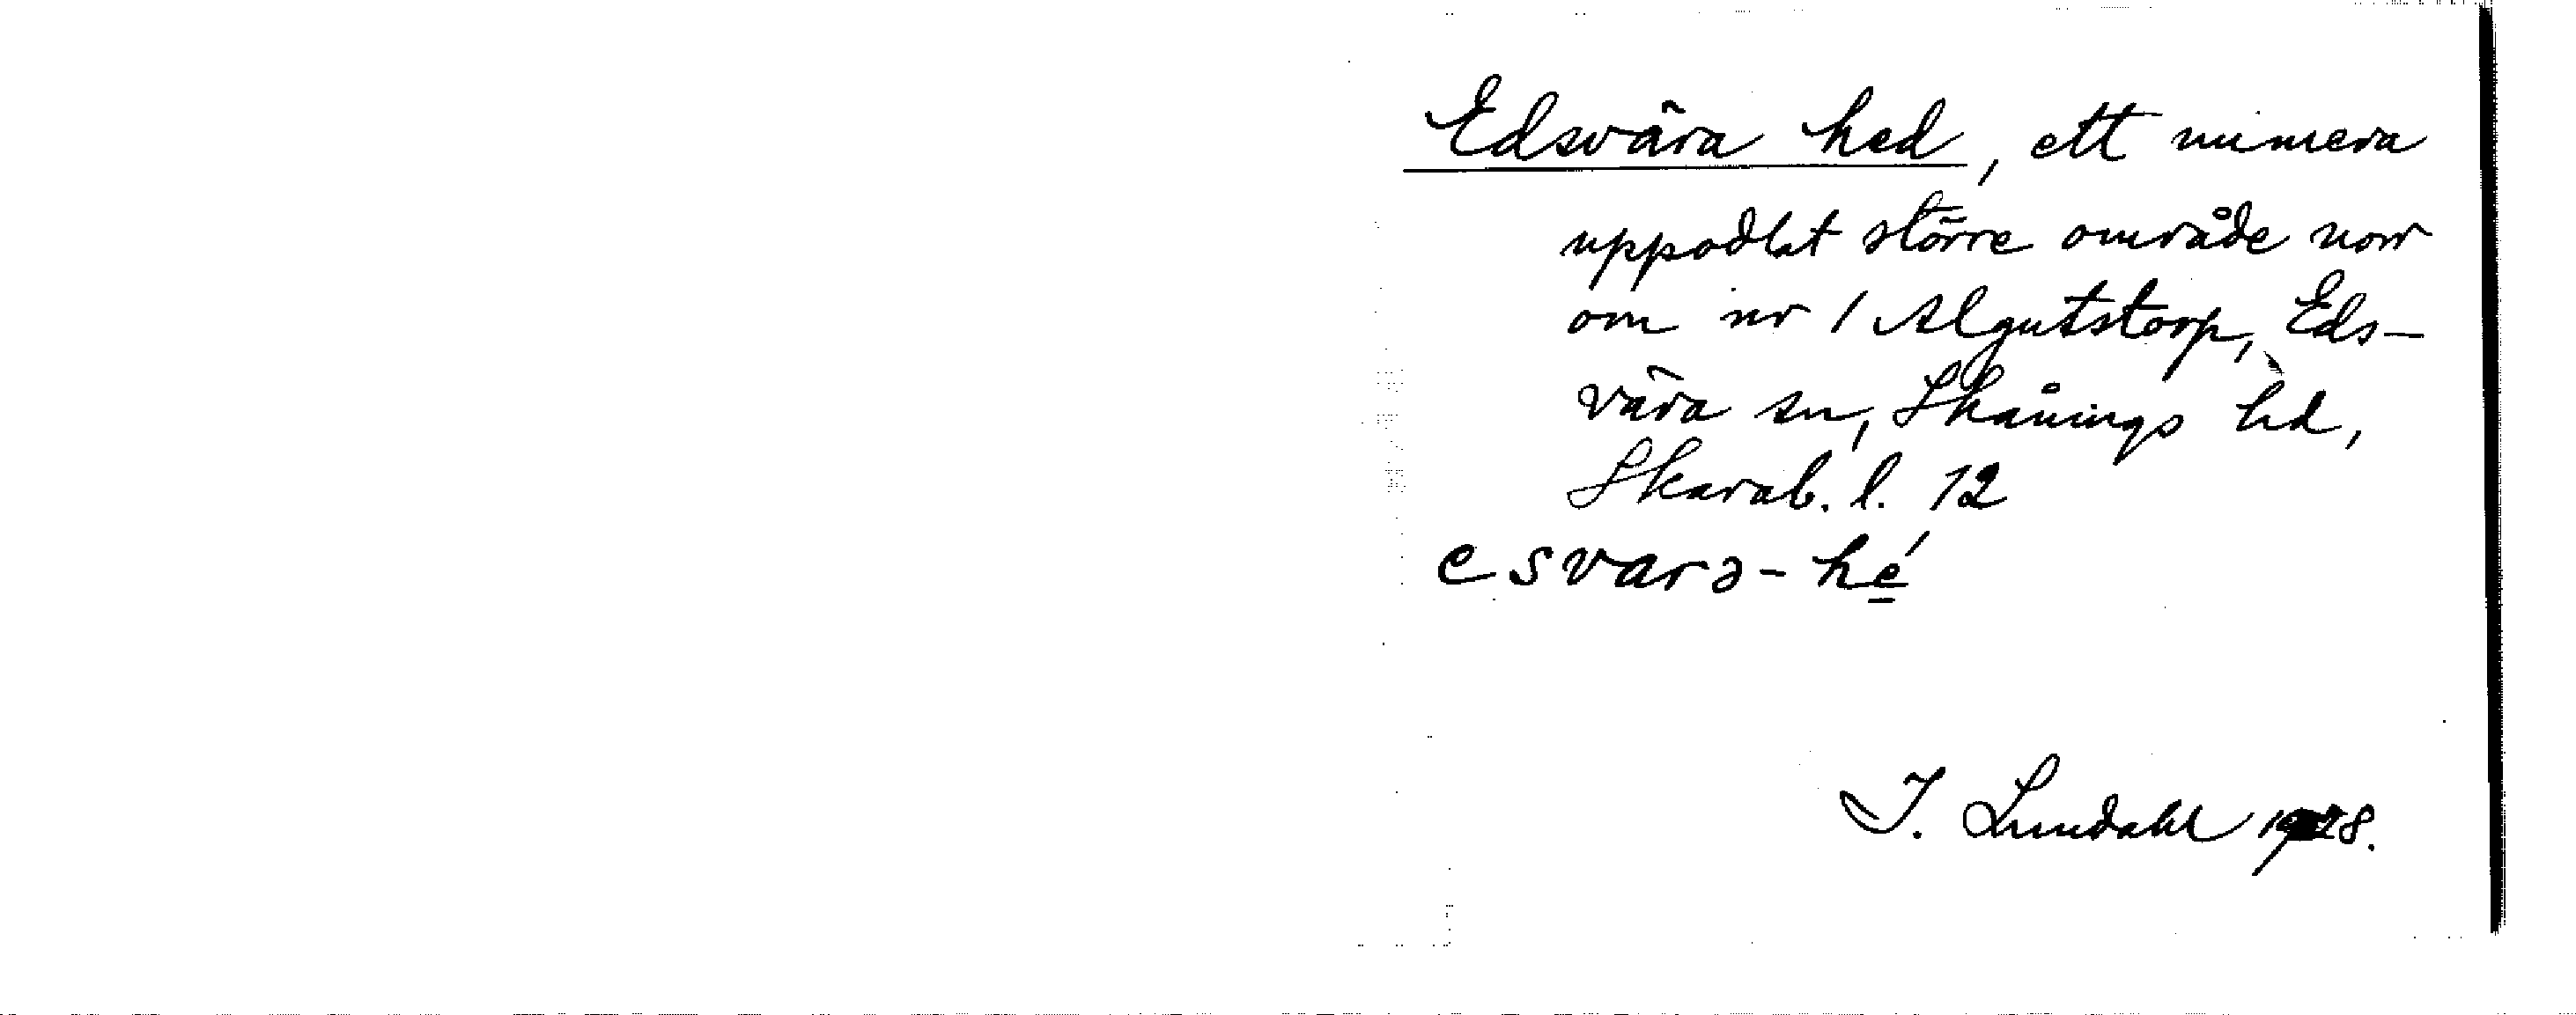 Edsvära hed, ett numera
uppodlat större område norr
om nr 1 Algutstorp, Eds-
vära sn, Skånings hd,
Skarab. l. 12
esvarə-hé
I. Lundahl 1928.